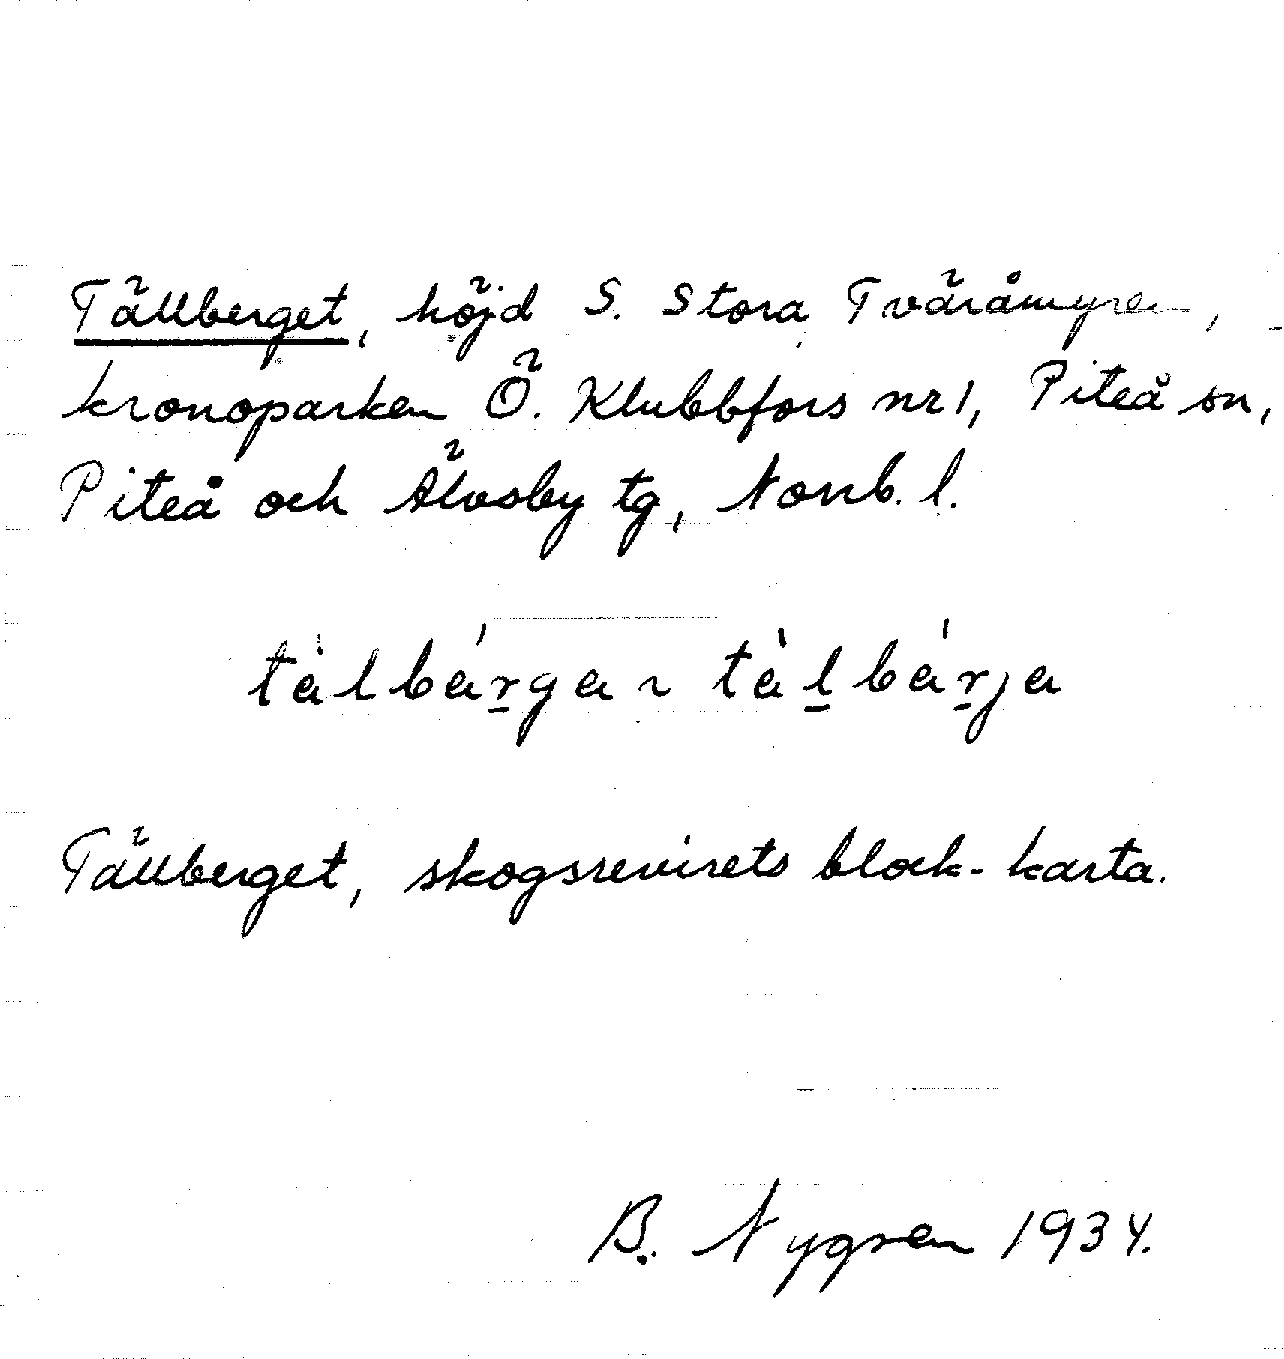 Tällberget, höjd S. Stora Tväråmyren,
kronoparken Ö. Klubbfors nr 1, Piteå sn,
Piteå och Älvsby tg, Norrb. l.
tàlbárga ~ tàl̲bár̲ja
Tällberget, skogsrevirets block-karta.
B. Nygren 1934.